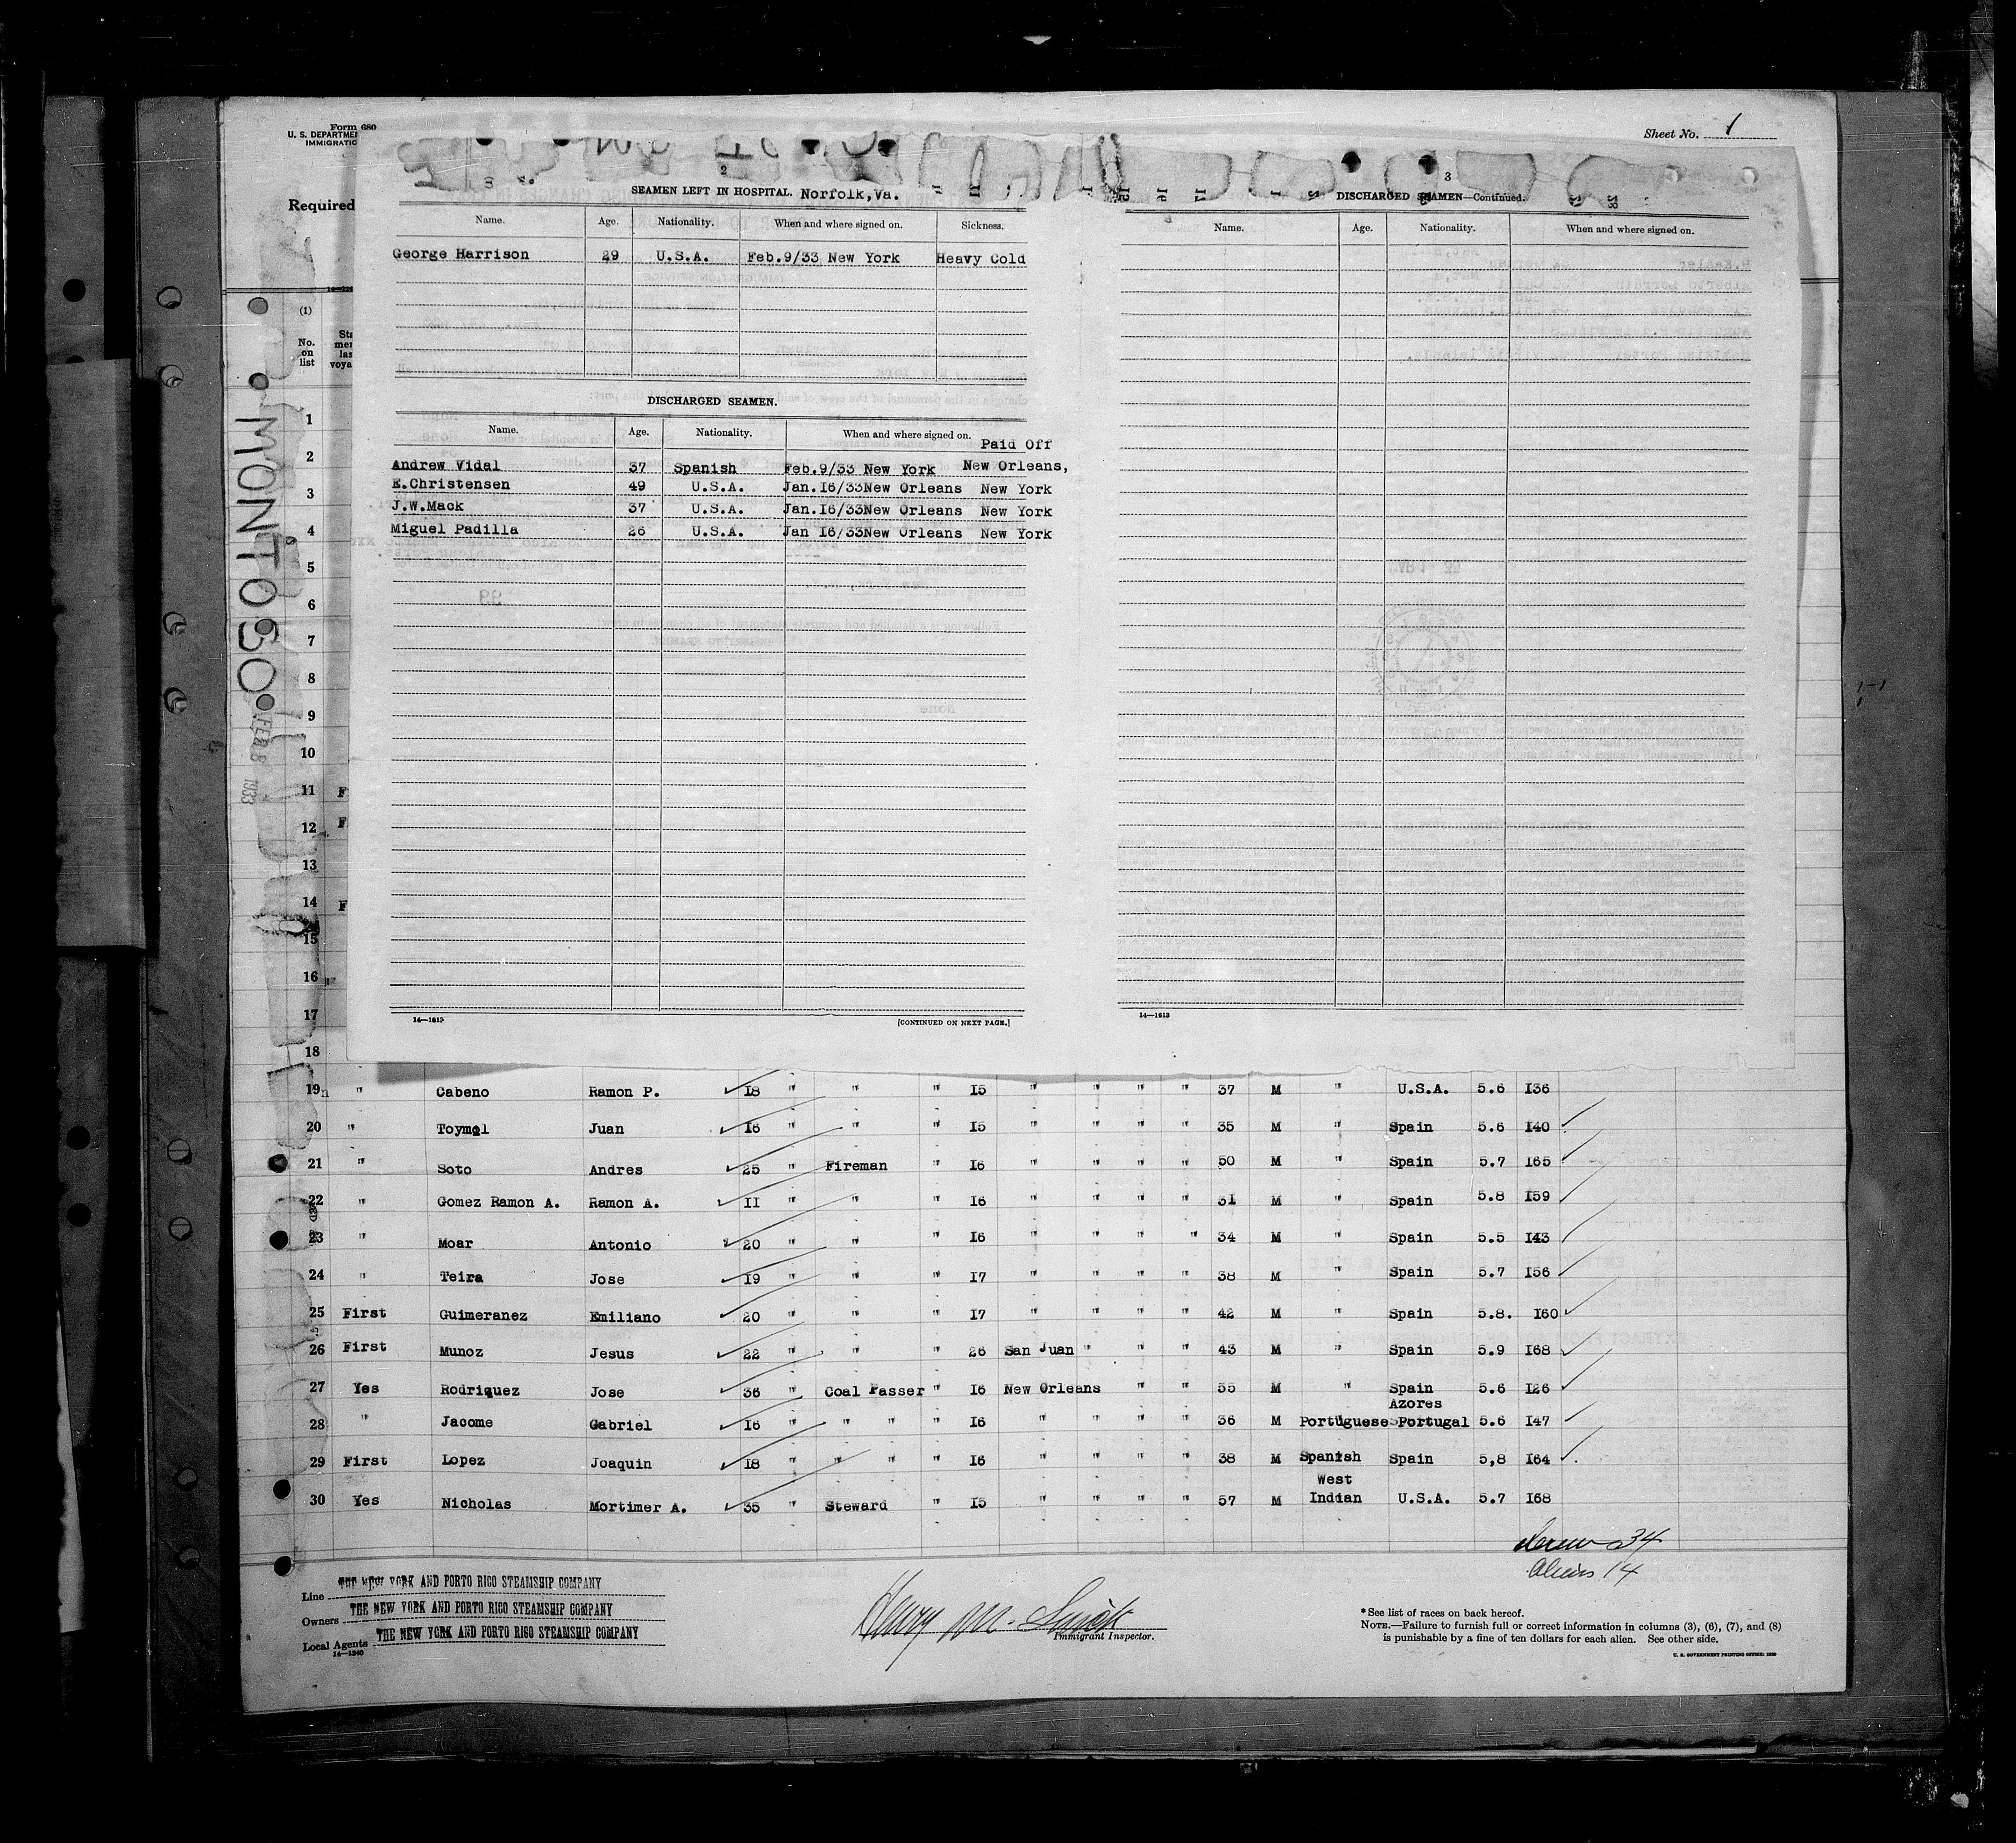 Form 680
U. S. DEPARTME
IMMIGRATIO
Sheet No. 1
Required
(1)
No. on list
MONTOSO
FEB 8 1933
2
SEAMEN LEFT IN HOSPITAL. Norfolk,Va.
Name. Age. Nationality. When and where signed on. Sickness.
George Harrison 29 U.S.A. Feb.9/33 New York Heavy Cold
DISCHARGED SEAMEN.
Name. Age. Nationality. When and where signed on. Paid Off
Andrew Vidal 37 Spanish Feb.9/33 New York New Orleans,
E.Christensen 49 U.S.A. Jan.16/33New Orleans New York
J.W.Mack 37 U.S.A. Jan.16/33New Orleans New York
Miguel Padilla 26 U.S.A. Jan 16/33New Orleans New York
14—1613
[CONTINUED ON NEXT PAGE.]
3
DISCHARGED SEAMEN—Continued.
Name. Age. Nationality. When and where signed on.
14—1613
1
2
3
4
5
6
7
8
9
10
11 F
12 F
13
14 F
15
16
17
18
19 " Cabeno Ramon P. 18 " " " 15 " " " " 37 M " U.S.A. 5.6 136
20 " Toymil Juan 16 " " " 15 " " " " 35 M " Spain 5.6 140
21 " Soto Andres 25 " Fireman " 16 " " " " 50 M " Spain 5.7 165
22 " Gomez Ramon A. Ramon A. 11 " " " 16 " " " " 31 M " Spain 5.8 159
23 " Moar Antonio 20 " " " 16 " " " " 34 M " Spain 5.5 143
24 " Teira Jose 19 " " " 17 " " " " 38 M " Spain 5.7 156
25 First Guimeranez Emiliano 20 " " " 17 " " " " 42 M " Spain 5.8. 160
26 First Munoz Jesus 22 " " " 26 San Juan " " " 43 M " Spain 5.9 168
27 Yes Rodriquez Jose 36 " Coal Passer " 16 New Orleans " " 55 M " Spain 5.6 126
28 " Jacome Gabriel 16 " " " " 16 " " " " 36 M Portuguese Azores Portugal 5.6 147
29 First Lopez Joaquin 18 " " " " 16 " " " " 38 M Spanish Spain 5,8 164
30 Yes Nicholas Mortimer A. 35 " Steward " 15 " " " " 57 M West Indian U.S.A. 5.7 168
34
Aliens 14
Line THE NEW YORK AND PORTO RICO STEAMSHIP COMPANY
Owners THE NEW YORK AND PORTO RICO STEAMSHIP COMPANY
Local Agents THE NEW YORK AND PORTO RICO STEAMSHIP COMPANY
14—1240
Immigrant Inspector.
*See list of races on back hereof.
NOTE.—Failure to furnish full or correct information in columns (3), (6), (7), and (8)
is punishable by a fine of ten dollars for each alien. See other side.
U. S. GOVERNMENT PRINTING OFFICE: 1929